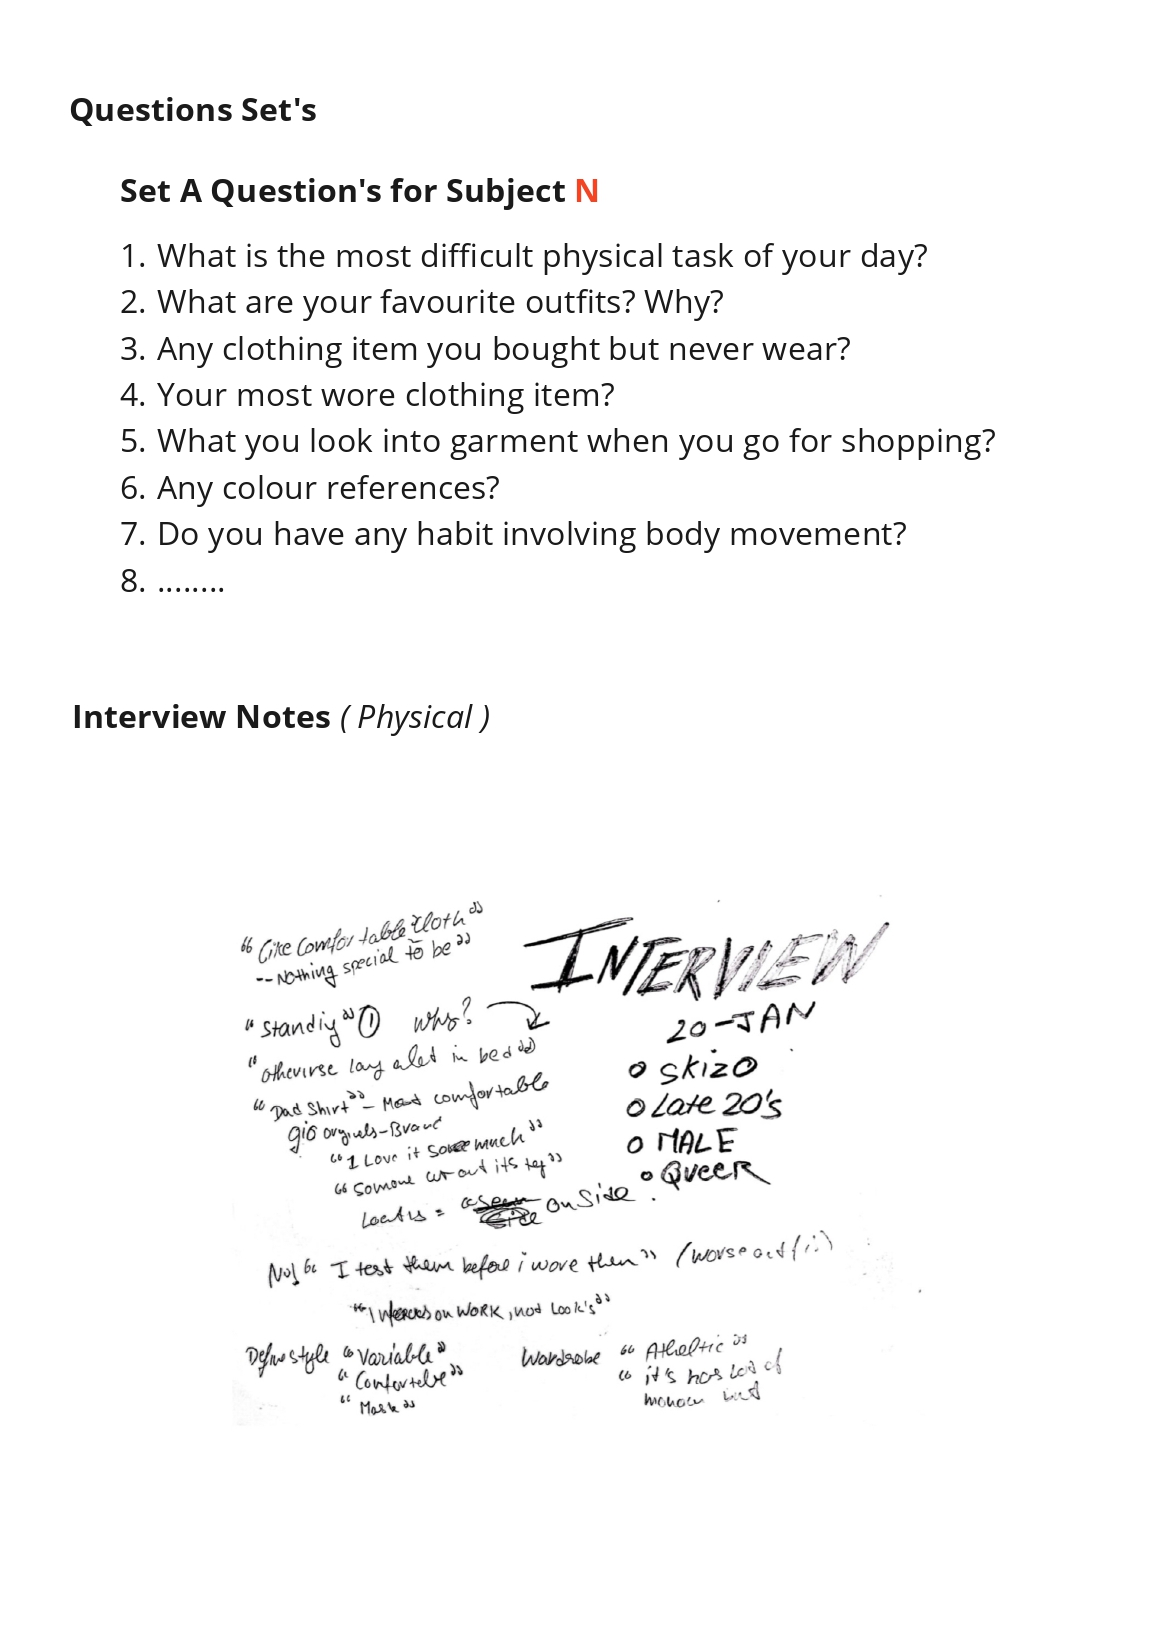 Questions Set's
Set A Question's for Subject N
1. What is the most difficult physical task of your day?
2. What are your favourite outfits? Why?
3. Any clothing item you bought but never wear?
4. Your most wore clothing item?
5. What you look into garment when you go for shopping?
6. Any colour references?
7. Do you have any habit involving body movement?
8. ........
Interview Notes ( Physical )
“ Like Comfortable Cloth ”
-- Nothing special to be ”
“ Standig ” ① Why?
“ otherwise lay alot in bed ”
“ Dad Shirt ” – Most comfortable
gio orginels-Brand
“ I Love it so much ”
“ Somone cut out its tag ”
= on Side .
INTERVIEW
20-JAN
o Skizo
o Late 20's
o MALE
o Queer
No! “ I test them before i wore then ” (worse outfit)
on WORK, not Look's ”
Define style “ Variable ”
“ Confortebe ”
“ Mask ”
Wardrobe “ Atheltic ”
“ it's has Lot of